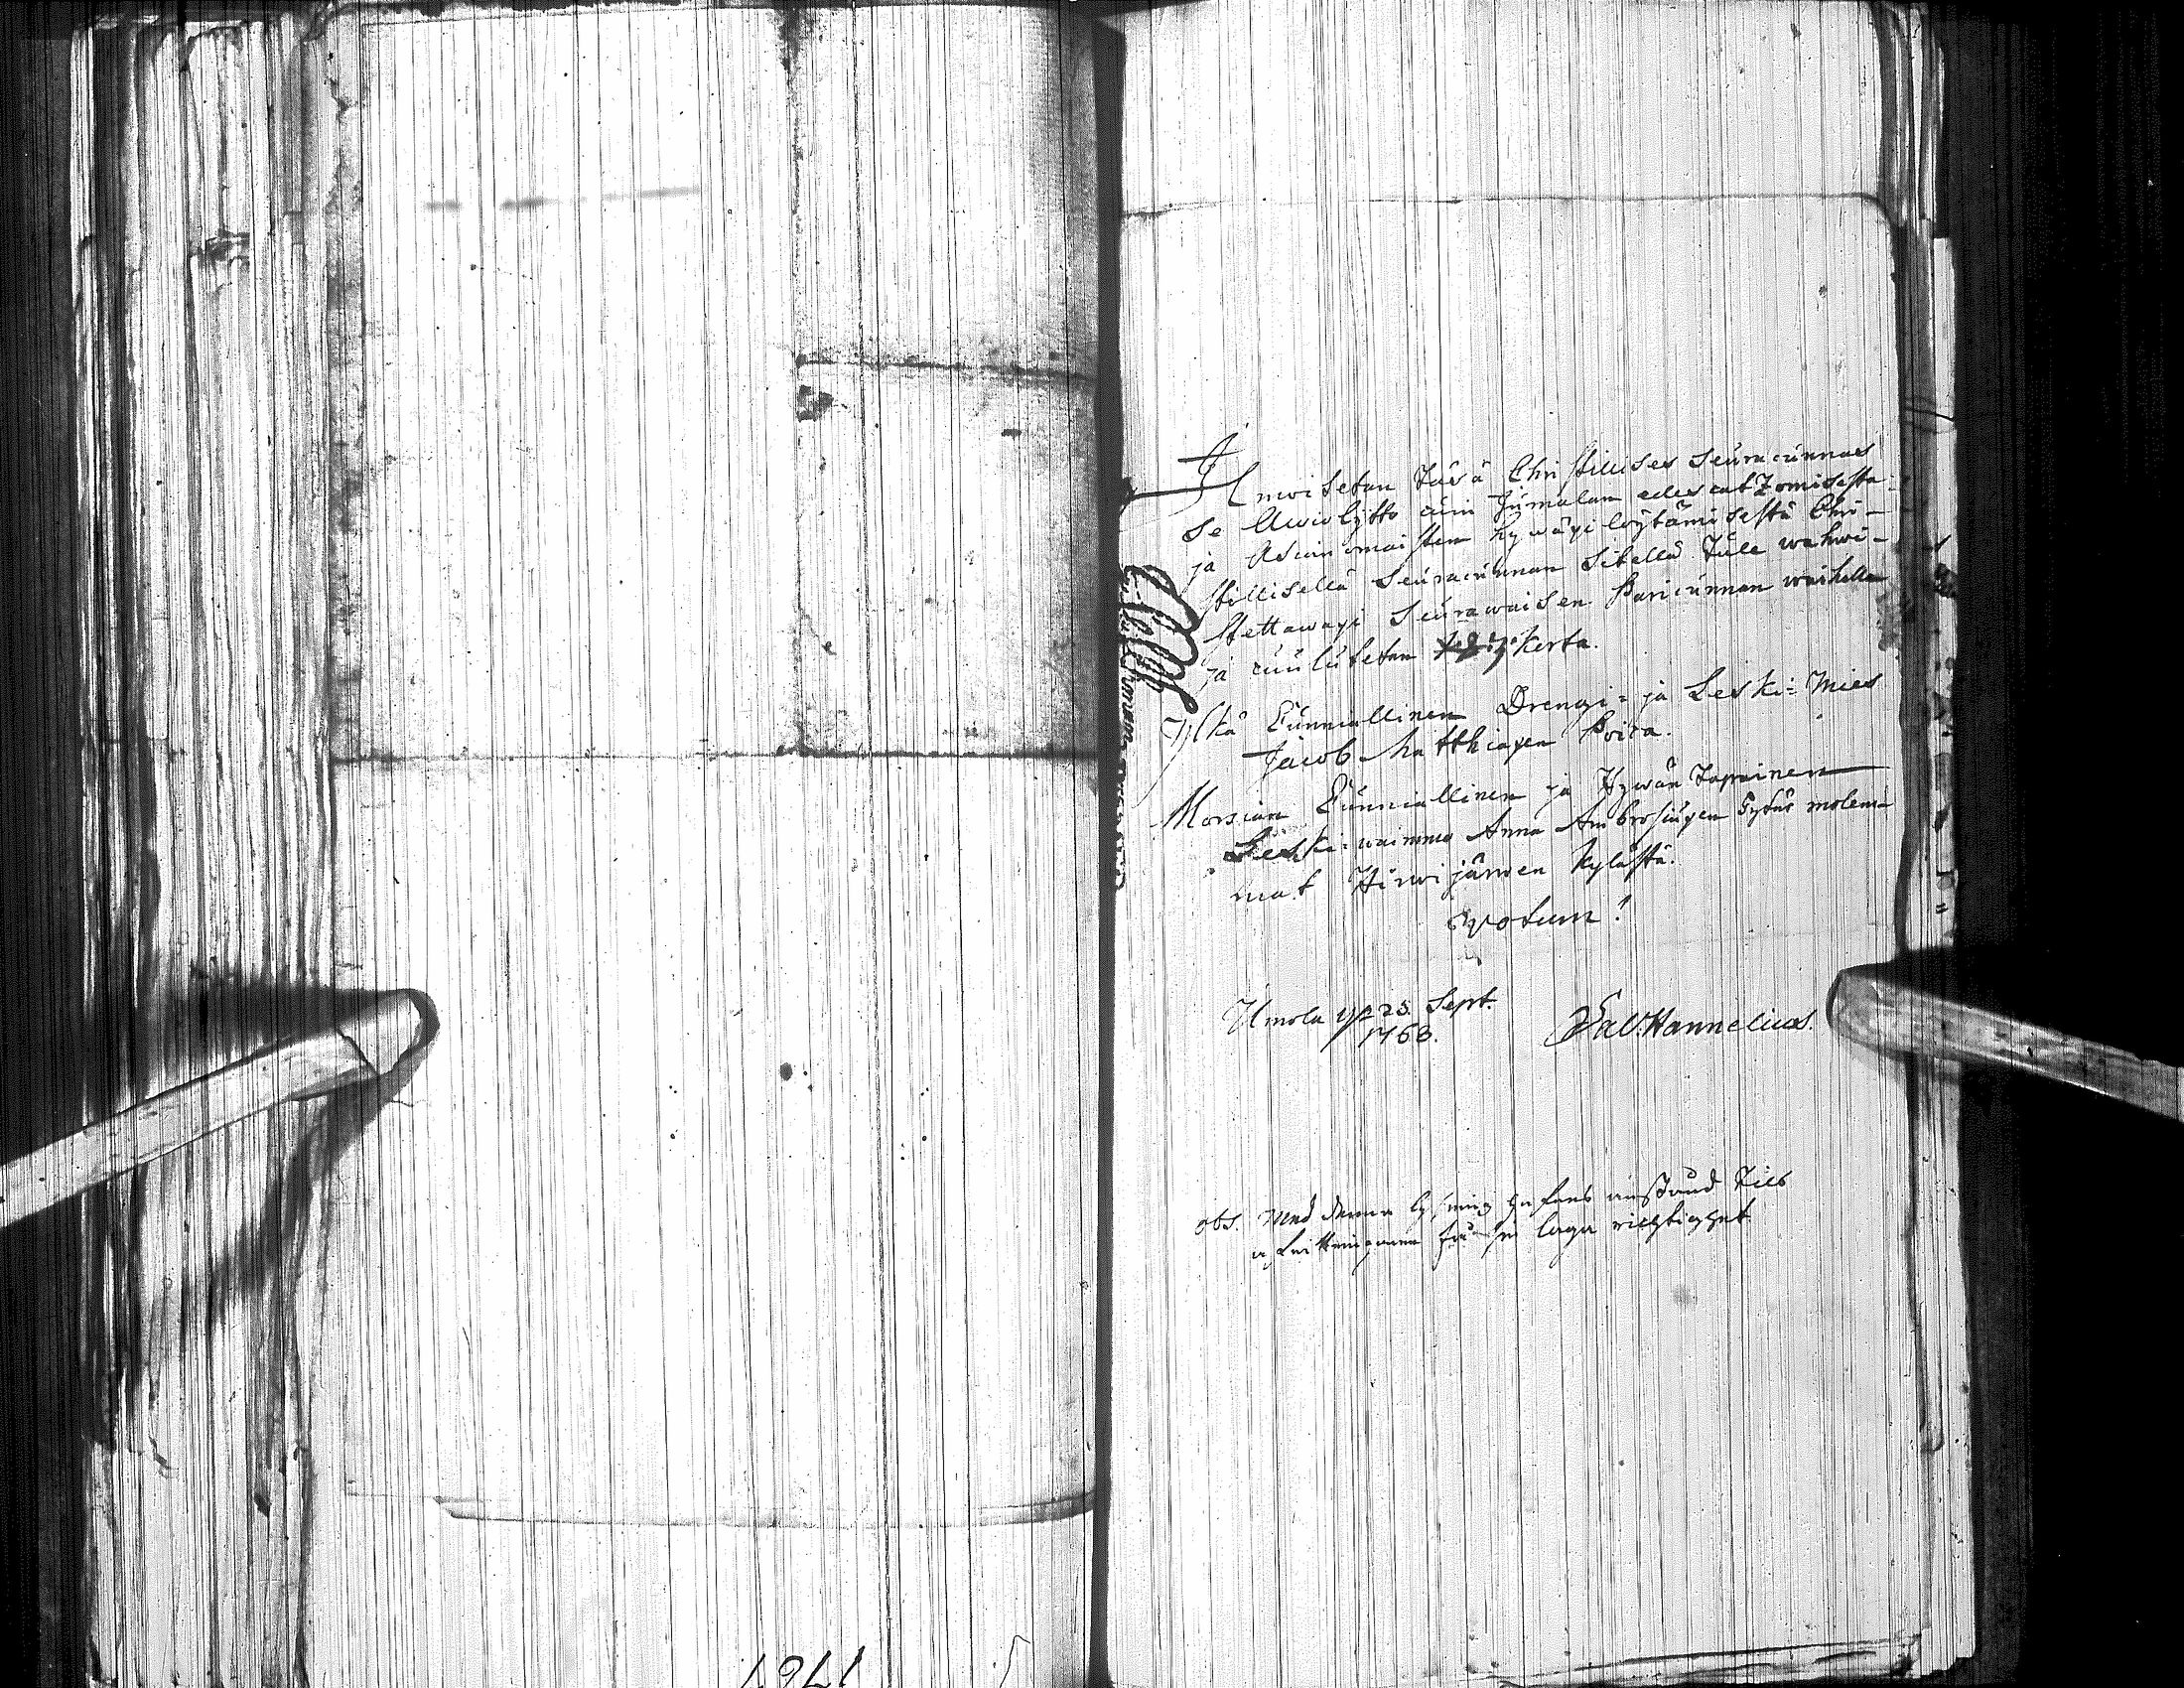 Ilmoitetan Täsä Christillises Seuracunnas
se Awio lijtto cuin Jumalan edescatzomisesta
ja Asianomaisten hywäxi löytämisestä Chri-
stillisellä Seuracunnan Sitellä Tule wahwi-
stettawaxi Seurawaisen Pariscunnan waihella
ja cuulutetan 1. 2. 3. Kerta.
Yljkä Cunniallinen Drengi- ja Leski-Mies
Jacob Matthiaxen Poica.
Morsian Cunniallinen ja Hywän Tapainen
Leski-waimmo Anna Ambrosiuxen Tytär molem-
mat Hirwijärwen Kylästä.
Votum!
Umola 25. Sept.
1768.
Sal. Hannelius.
obs. Med denna Lysning hafwes anstånd Tils
få sin laga richtighet
1761